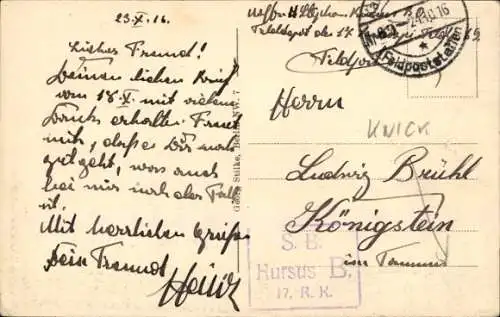 23.X.16.
Lieber Freund!
Deinen lieben Brief
vom 18.X. mit vielem
Dank erhalten. Freut
mich, dass es Dir noch
gut geht, was auch
bei mir noch der Fall
ist.
Mit herzlichen Grüßen
Dein Freund
Heinz
Georg Stilke, Berlin NW. 7
Feldpost
Feldpoststation
24.10.16
Herrn
KNICK
Ludwig Brühl
Königstein
im Taunus
S. B.
Hursus B.
17. R. K.